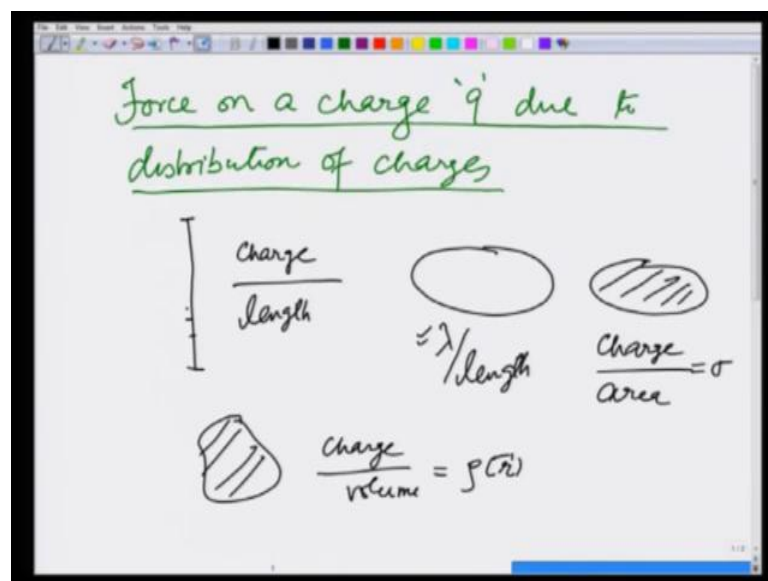 File Edit View Insert Actions Tools Help
Force on a charge 'q' due to
distribution of charges
Charge
length
= λ/length
Charge
area
= σ
Charge
volume
= ρ(r⃗)
1/2